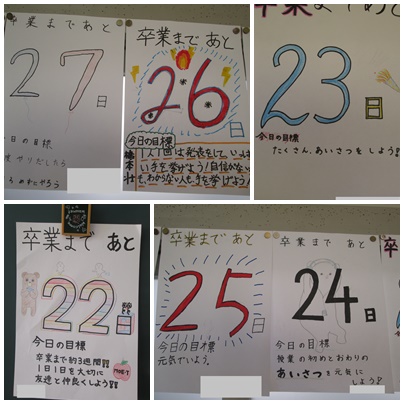 卒業まで あと
27日
今日の目標
卒業まで あと
26日
今日の目標
1人1回は発表をして、
い手を挙げよう!自信がな
も、わからない人も、手を挙げよう!
卒業まであと
23日
今日の目標
たくさん、あいさつをしよう
卒業まで あと
22日
今日の目標
卒業まで約3週間!!
1日1日を大切に
友達と仲良くしよう!!
卒業まで あと
25日
今日の目標
元気でいよう。
卒業まで あと
24日
今日の目標
授業の初めとおわりの
あいさつを元気に
しよう!